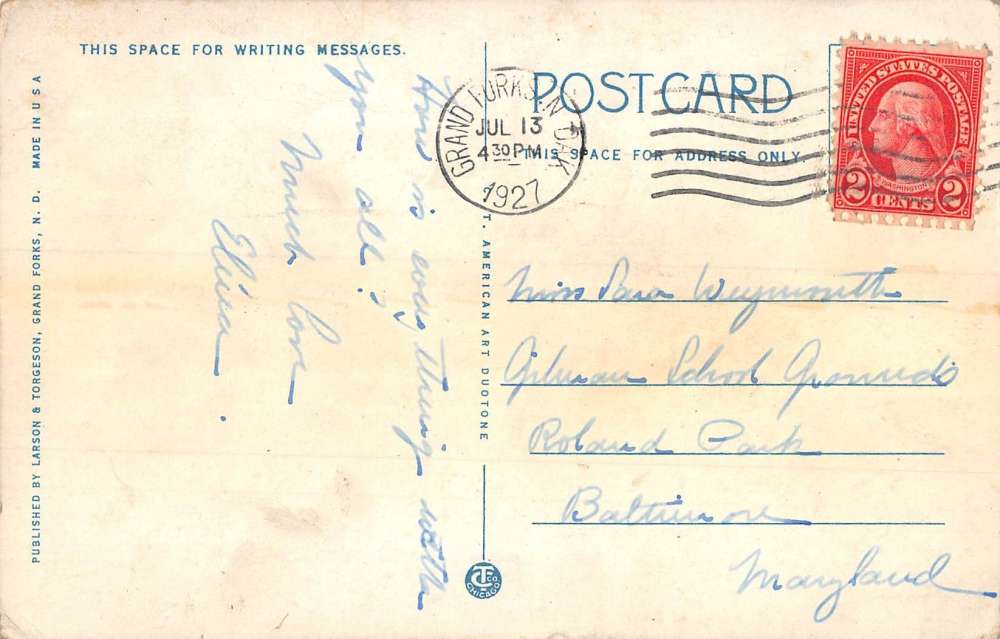 THIS SPACE FOR WRITING MESSAGES.
How is every thing with
you all?
Much love
Elisa.
PUBLISHED BY LARSON & TORGESON, GRAND FORKS, N. D. MADE IN USA
T. AMERICAN ART DUOTONE
C. T. CO. CHICAGO
POSTCARD
THIS SPACE FOR ADDRESS ONLY
GRAND FORKS, N. DAK.
JUL 13
4 30 PM
1927
UNITED STATES POSTAGE
WASHINGTON
2 CENTS 2
Miss Sara Weymouth
Gilman School Grounds
Roland Park
Baltimore
Maryland